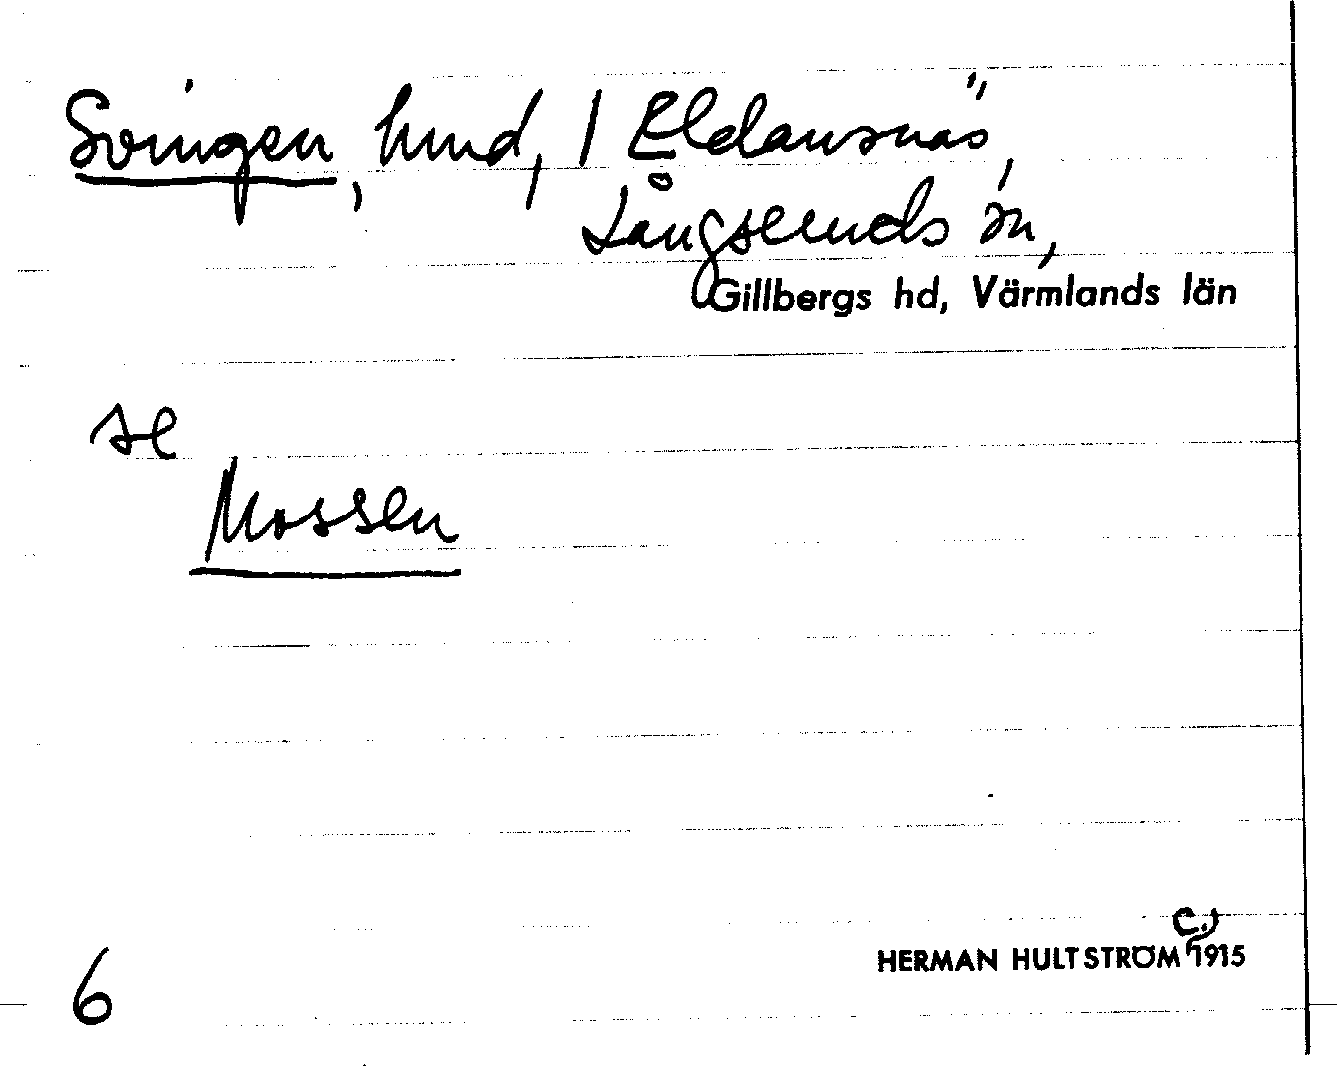 Svingen, hmd, 1 Eldansnäs,
Långseruds sn,
Gillbergs hd, Värmlands län
se
Mossen
C.
HERMAN HULTSTRÖM 1915
6